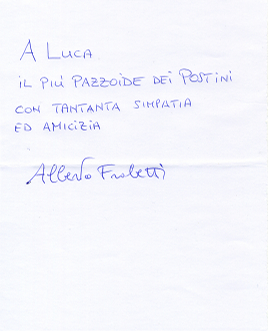 A LUCA
IL PIÙ PAZZOIDE DEI POSTINI
CON TANTANTA SIMPATIA
ED AMICIZIA
Alberto